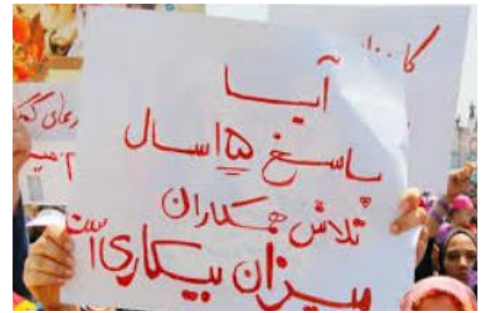 آیا
پاسخ ۱۵ سال
تلاش همکاران
میزان بیکاری است